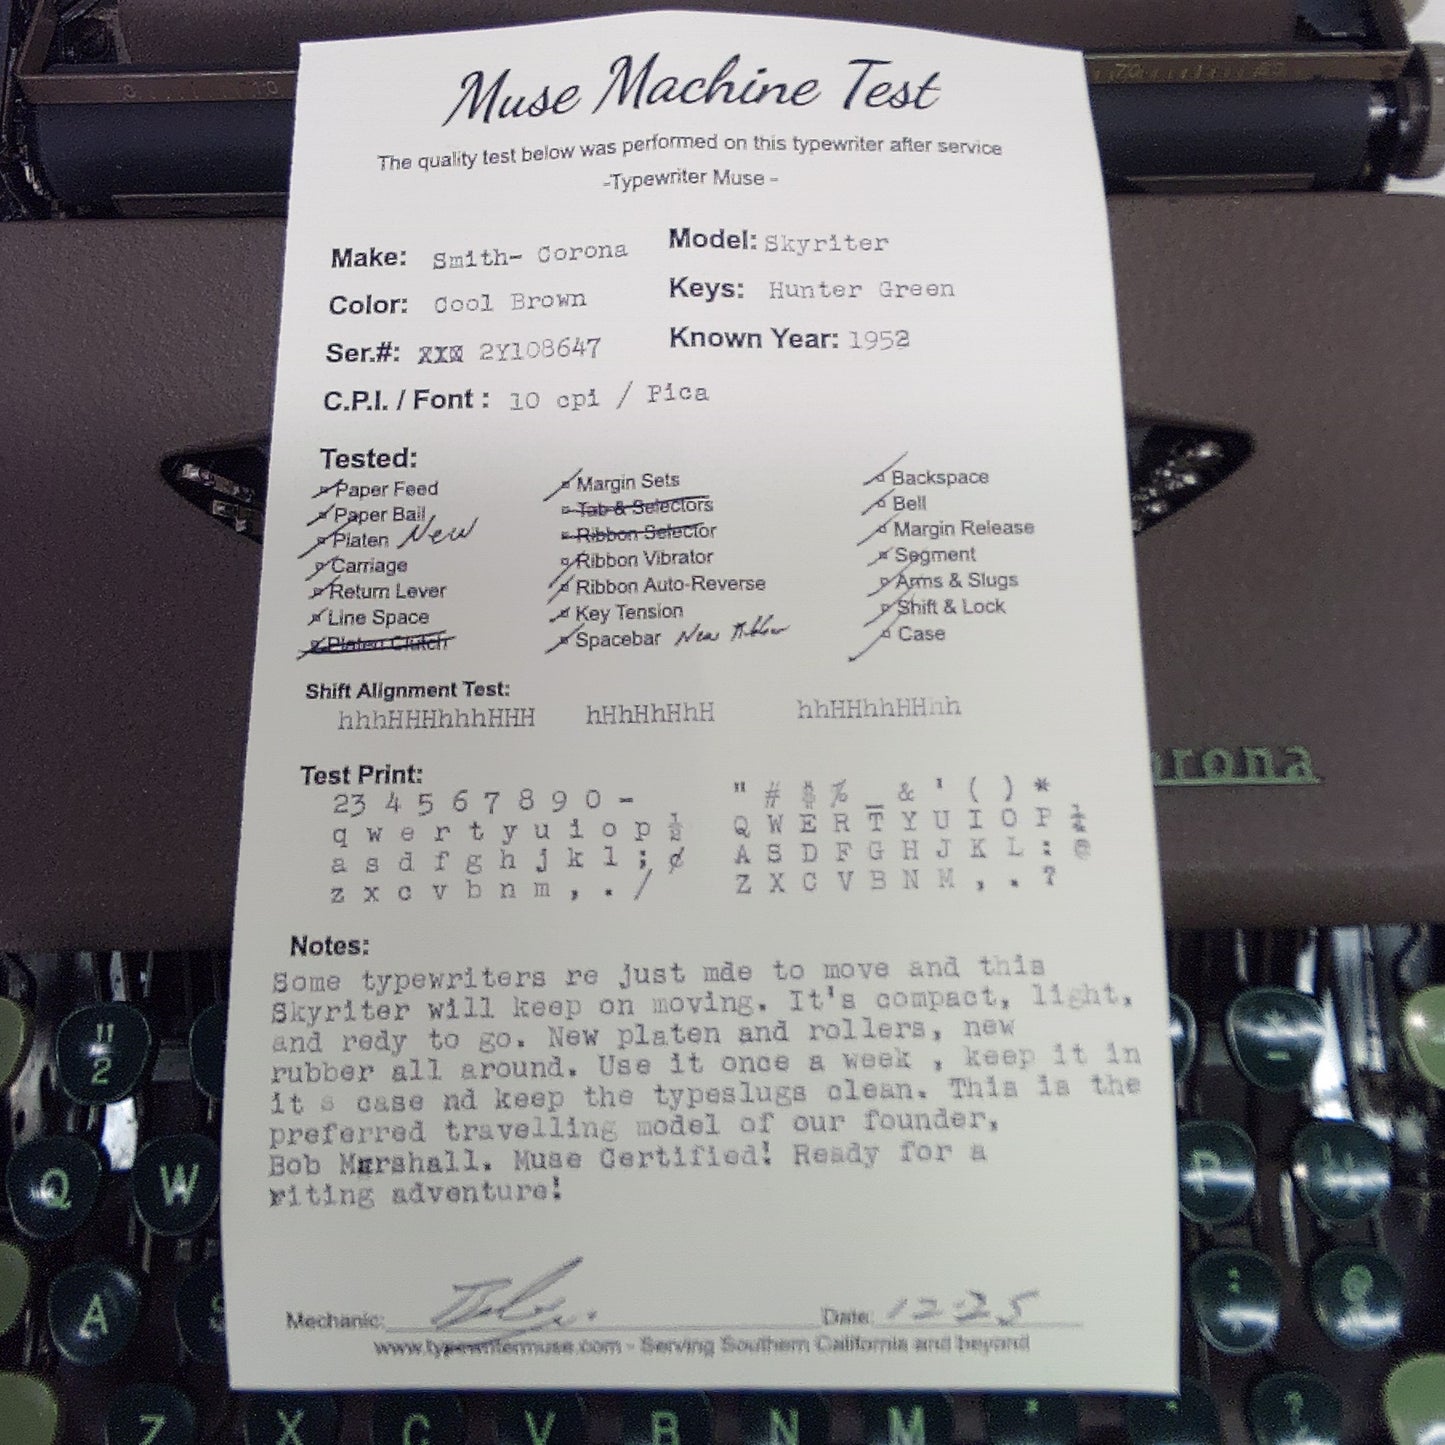 Muse Machine Test
The quality test below was performed on this typewriter after service
-Typewriter Muse -
Make: Smith- Corona Model: Skyriter
Color: Cool Brown Keys: Hunter Green
Ser.#: XXX 2Y108647 Known Year: 1952
C.P.I. / Font : 10 cpi / Pica
Tested:
Paper Feed Margin Sets Backspace
Paper Bail Tab & Selectors Bell
Platen New Ribbon Selector Margin Release
Carriage Ribbon Vibrator Segment
Return Lever Ribbon Auto-Reverse Arms & Slugs
Line Space Key Tension Shift & Lock
Platen Clutch Spacebar New Ribbon Case
Shift Alignment Test:
hhhHHHhhhHHH hHhHhHhH hhHHhhHHhh
Test Print:
23 4 5 6 7 8 9 0 - " # $ % _ & ' ( ) *
q w e r t y u i o p ½ Q W E R T Y U I O P ¼
a s d f g h j k l ; ¢ A S D F G H J K L : @
z x c v b n m , . / Z X C V B N M , . ?
Notes:
Some typewriters re just mde to move and this
Skyriter will keep on moving. It's compact, light,
and redy to go. New platen and rollers, new
rubber all around. Use it once a week , keep it in
it s case nd keep the typeslugs clean. This is the
preferred travelling model of our founder,
Bob Marshall. Muse Certified! Ready for a
riting adventure!
Mechanic: Date: 12-25
www.typewritermuse.com - Serving Southern California and beyond
orona
"
2
*
-
Q W P
A : @
;
Z X C V B N M ?